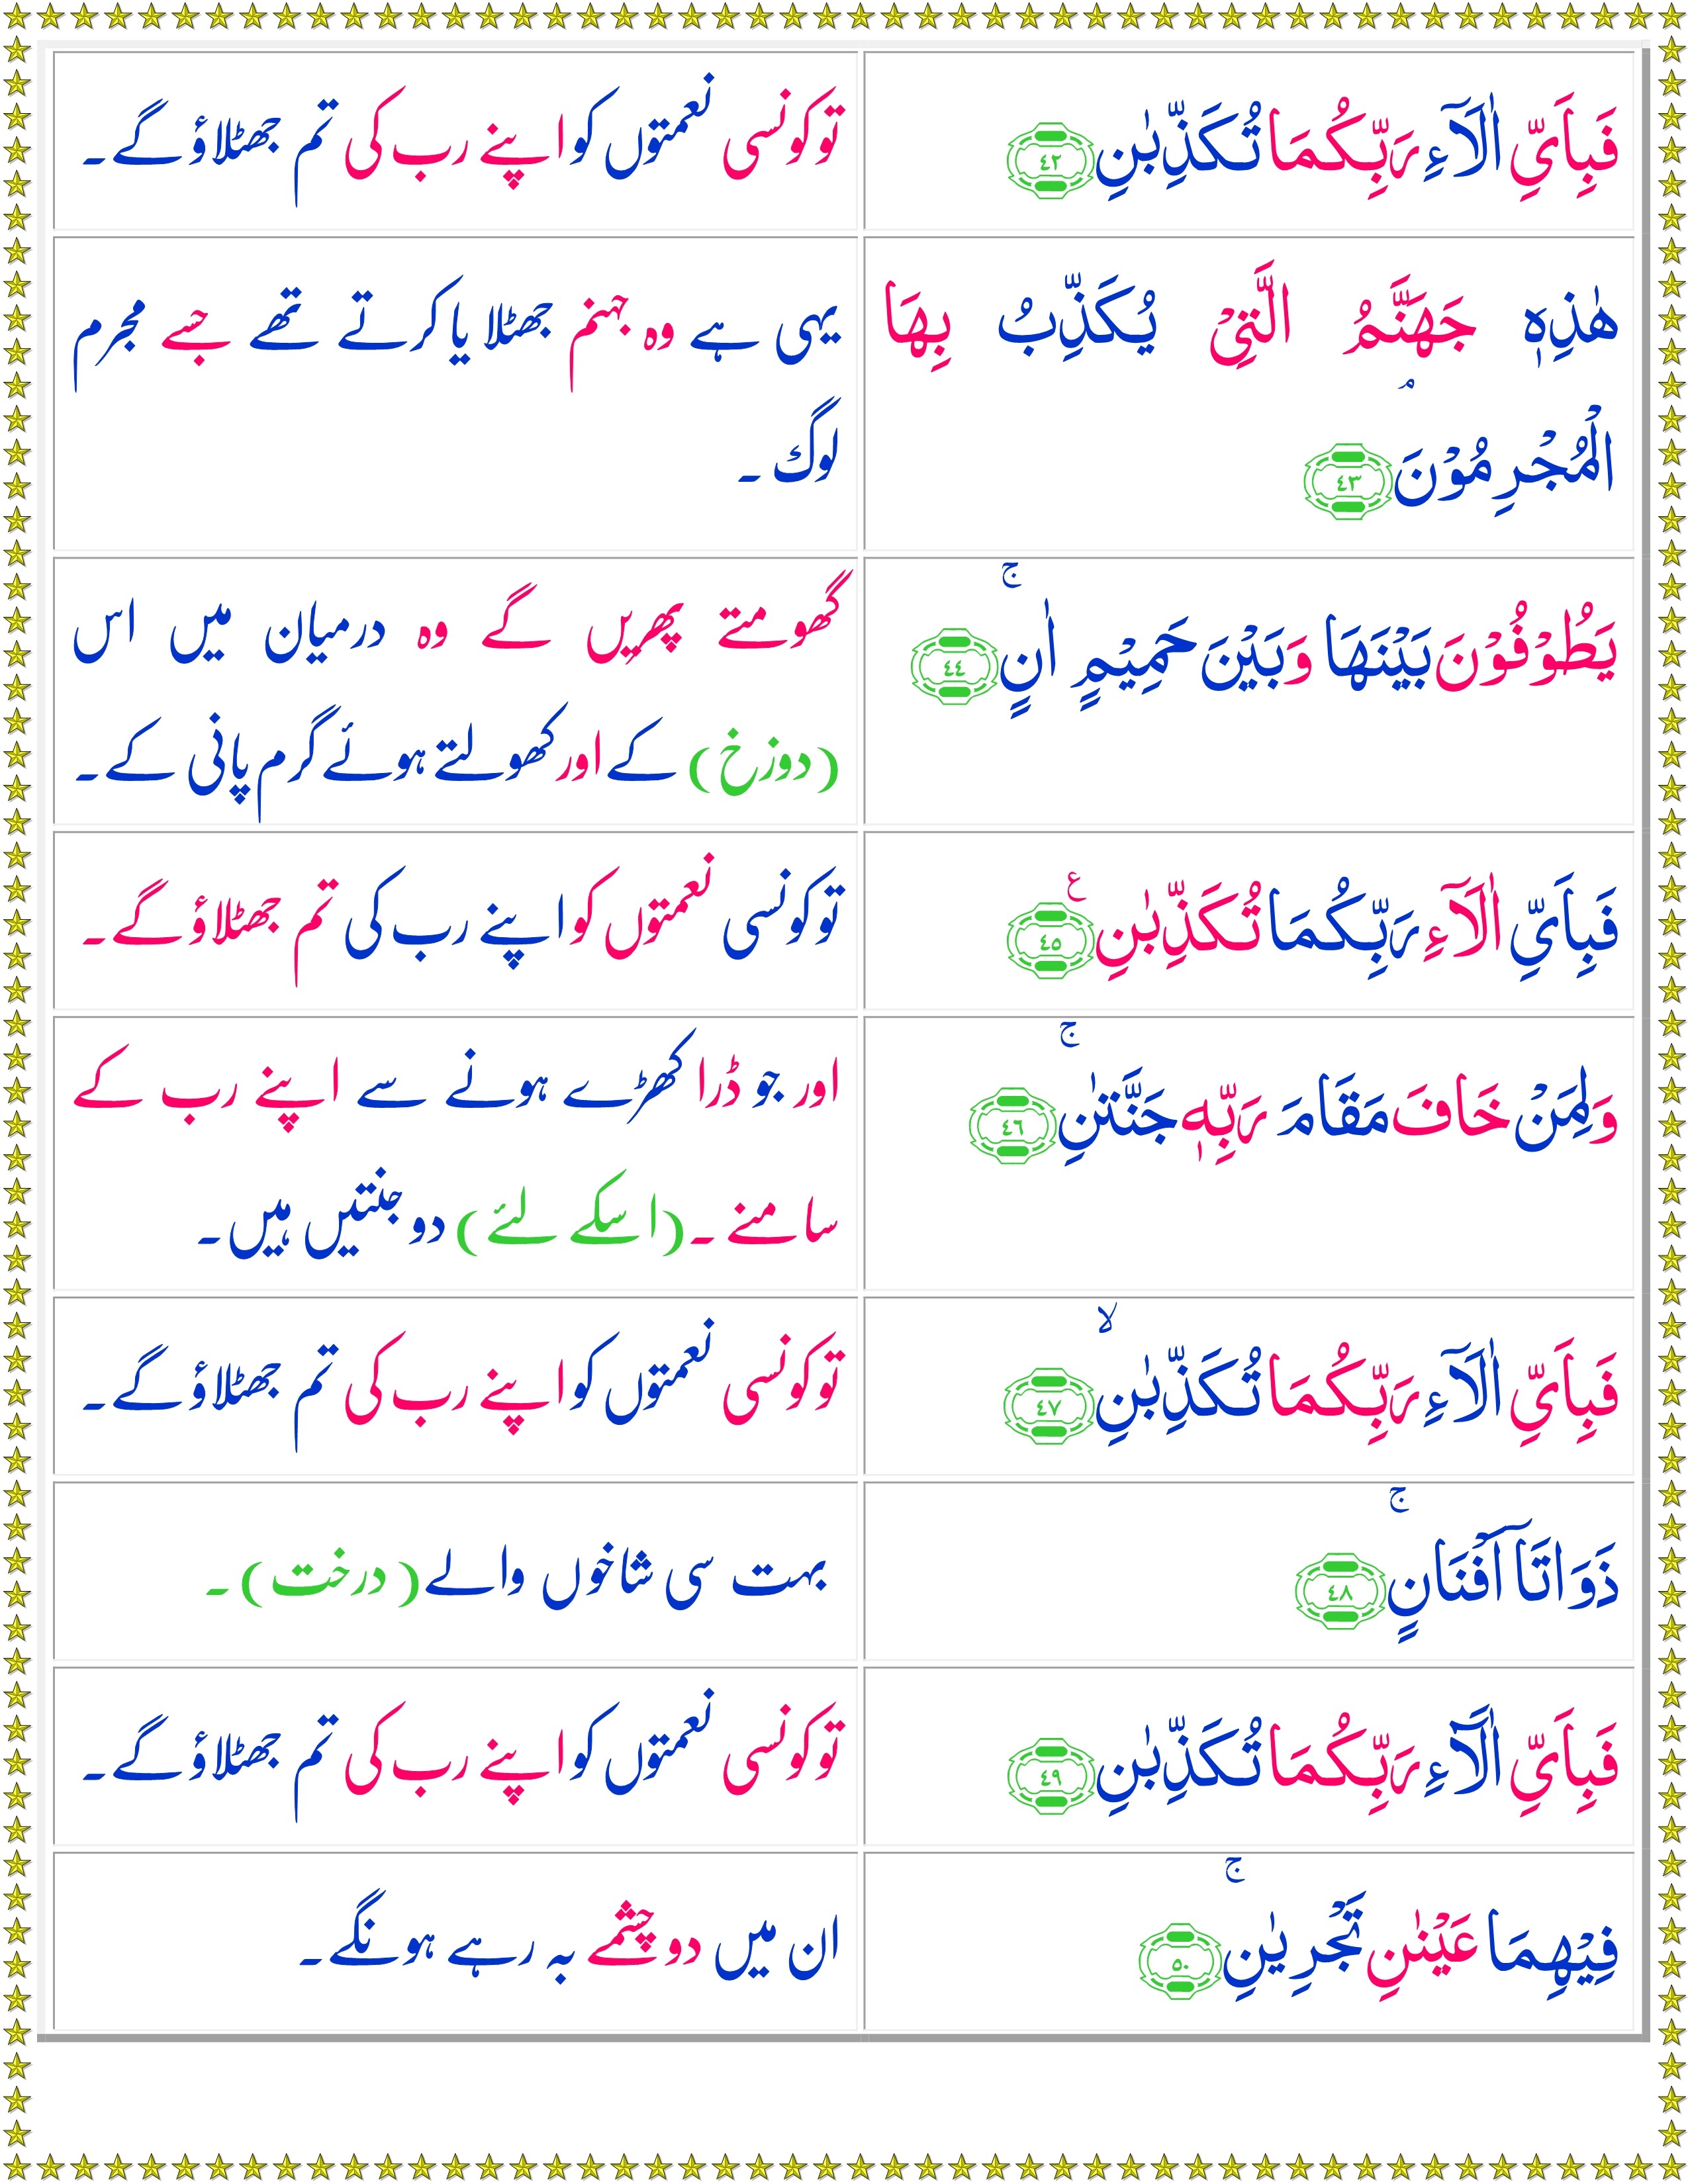 فَبِاَیِّ اٰلَآءِ رَبِّکُمَا تُکَذِّبٰنِ ﴿٤٢﴾
تو کونسی نعمتوں کو اپنے رب کی تم جھٹلاؤ گے۔
هٰذِهٖ جَهَنَّمُ الَّتِیْ یُکَذِّبُ بِهَا
الْمُجْرِمُوْنَ ۘ﴿٤٣﴾
یہی ہے وہ جہنم جھٹلا یا کرتے تھے جسے مجرم
لوگ۔
یَطُوْفُوْنَ بَیْنَهَا وَبَیْنَ حَمِیْمٍ اٰنٍ ۚ﴿٤٤﴾
گھومتے پھریں گے وہ درمیان میں اس
(دوزخ) کے اور کھولتے ہوئے گرم پانی کے۔
فَبِاَیِّ اٰلَآءِ رَبِّکُمَا تُکَذِّبٰنِ ع ﴿٤٥﴾
تو کونسی نعمتوں کو اپنے رب کی تم جھٹلاؤ گے۔
وَلِمَنْ خَافَ مَقَامَ رَبِّهٖ جَنَّتٰنِ ۚ﴿٤٦﴾
اور جو ڈرا کھڑے ہونے سے اپنے رب کے
سامنے۔ (اسکے لئے) دو جنتیں ہیں۔
فَبِاَیِّ اٰلَآءِ رَبِّکُمَا تُکَذِّبٰنِ ۙ﴿٤٧﴾
تو کونسی نعمتوں کو اپنے رب کی تم جھٹلاؤ گے۔
ذَوَاتَاۤ اَفْنَانٍ ۚ﴿٤٨﴾
بہت سی شاخوں والے (درخت)۔
فَبِاَیِّ اٰلَآءِ رَبِّکُمَا تُکَذِّبٰنِ ﴿٤٩﴾
تو کونسی نعمتوں کو اپنے رب کی تم جھٹلاؤ گے۔
فِیْهِمَا عَیْنٰنِ تَجْرِیٰنِ ۚ﴿٥٠﴾
ان میں دو چشمے بہ رہے ہونگے۔